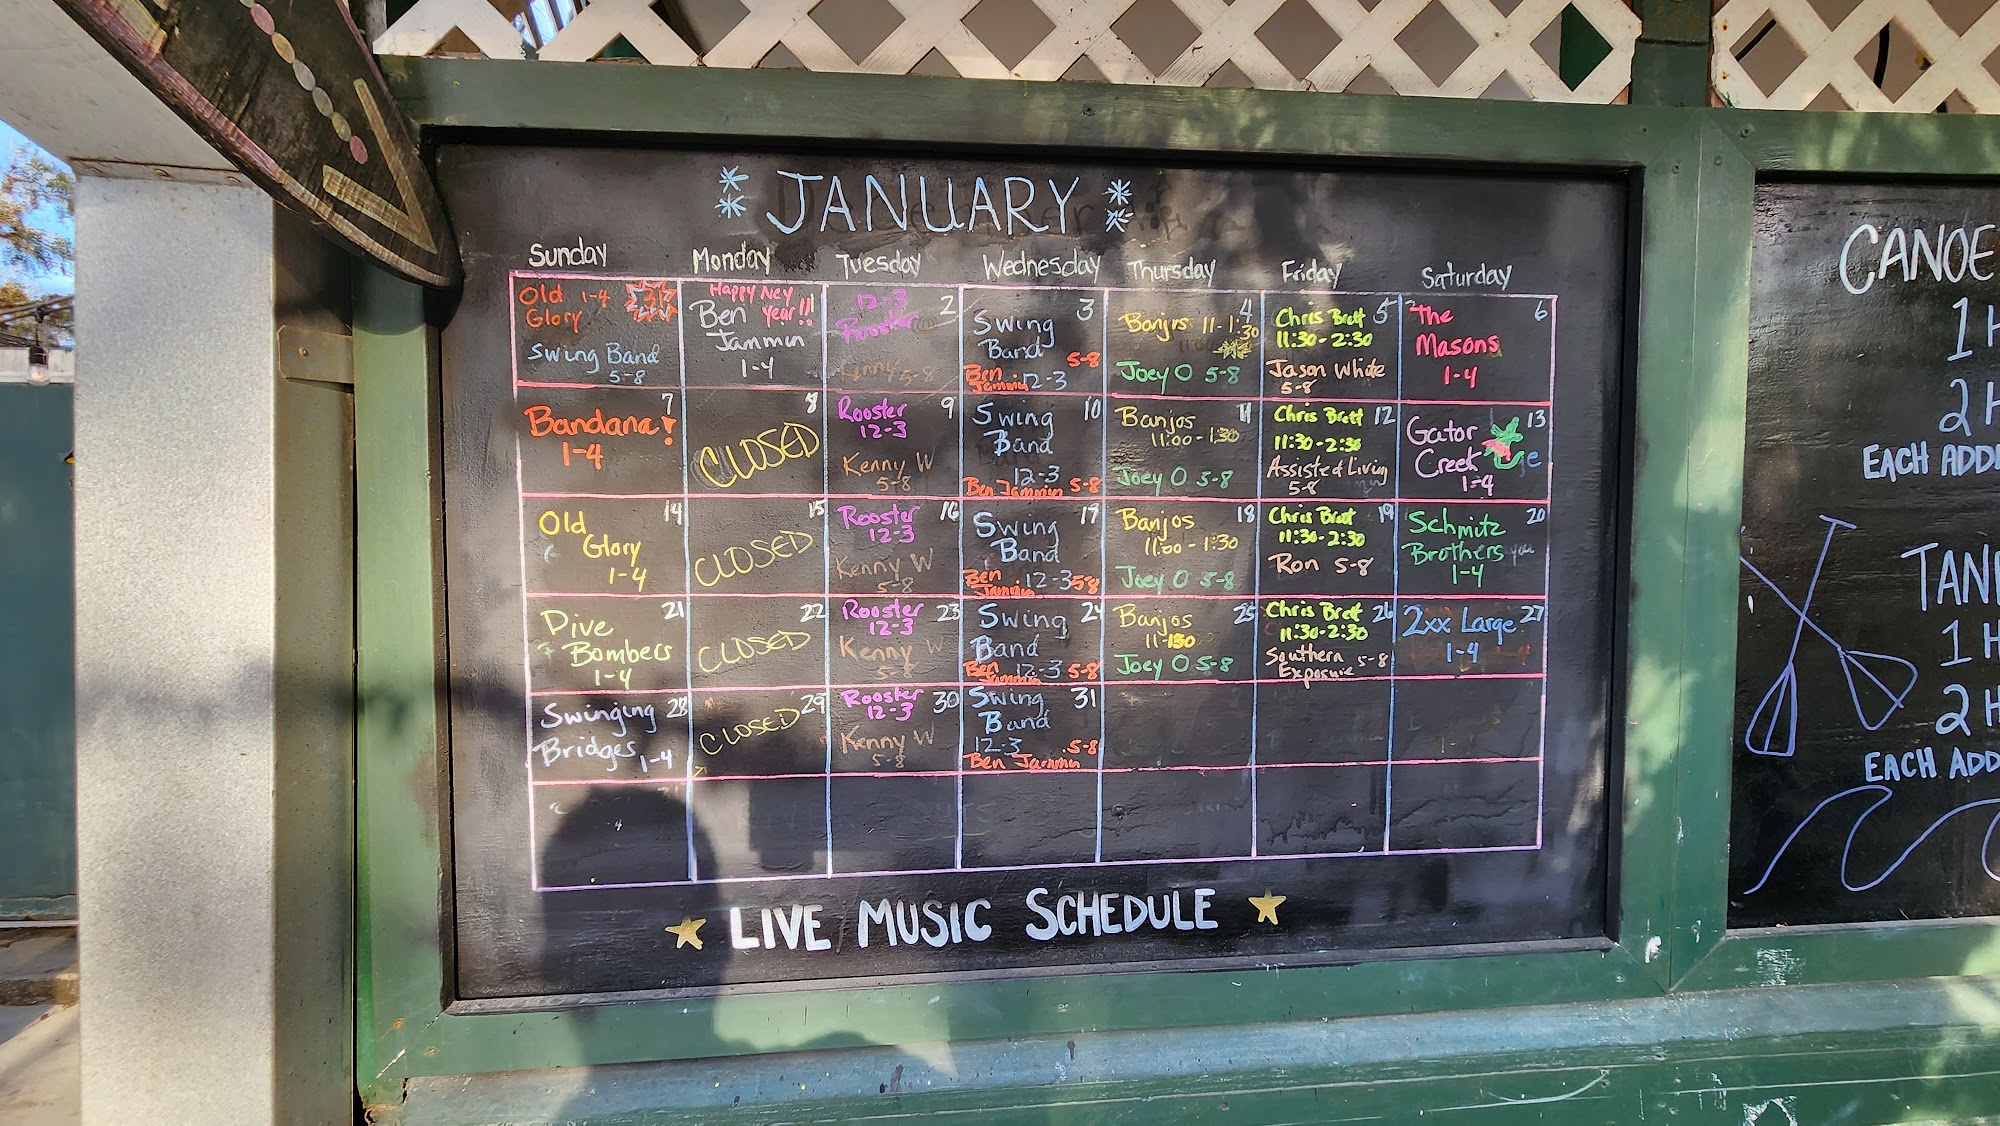 JANUARY
Sunday Monday Tuesday Wednesday Thursday Friday Saturday
Old 1-4 31
Glory
Swing Band
5-8
Happy Ney
Ben Year!!!
Jammin
1-4
12-3 2
Rooster
Kenny 5-8
3
Swing
Band 5-8
Ben
Jammin 12-3
4
Banjos 11-1:30
Joey O 5-8
Chris Brett 5
11:30-2:30
Jason White
5-8
The 6
Masons
1-4
7
Bandana!
1-4
8
CLOSED
Rooster 9
12-3
Kenny W
5-8
Swing 10
Band
12-3
Ben Jammin 5-8
Banjos 11
11:00-1:30
Joey O 5-8
Chris Brett 12
11:30-2:30
Assisted Living
5-8
13
Gator
Creek
1-4
14
Old
Glory
1-4
15
CLOSED
Rooster 16
12-3
Kenny W
5-8
Swing 17
Band
Ben 12-3 5-8
Jammin
Banjos 18
11:00-1:30
Joey O 5-8
Chris Brett 19
11:30-2:30
Ron 5-8
Schmitz 20
Brothers
1-4
21
Dive
Bombers
1-4
22
CLOSED
Rooster 23
12-3
Kenny W
5-8
Swing 24
Band
Ben 12-3 5-8
Jammin
Banjos 25
11-1:30
Joey O 5-8
Chris Brett 26
11:30-2:30
Southern 5-8
Exposure
2xx Large 27
1-4
Swinging 28
Bridges 1-4
29
CLOSED
Rooster 30
12-3
Kenny W
5-8
Swing 31
Band
12-3 5-8
Ben Jammin
LIVE MUSIC SCHEDULE
CANOE
1 H
2 H
EACH ADD
TAN
1 H
2 H
EACH ADD